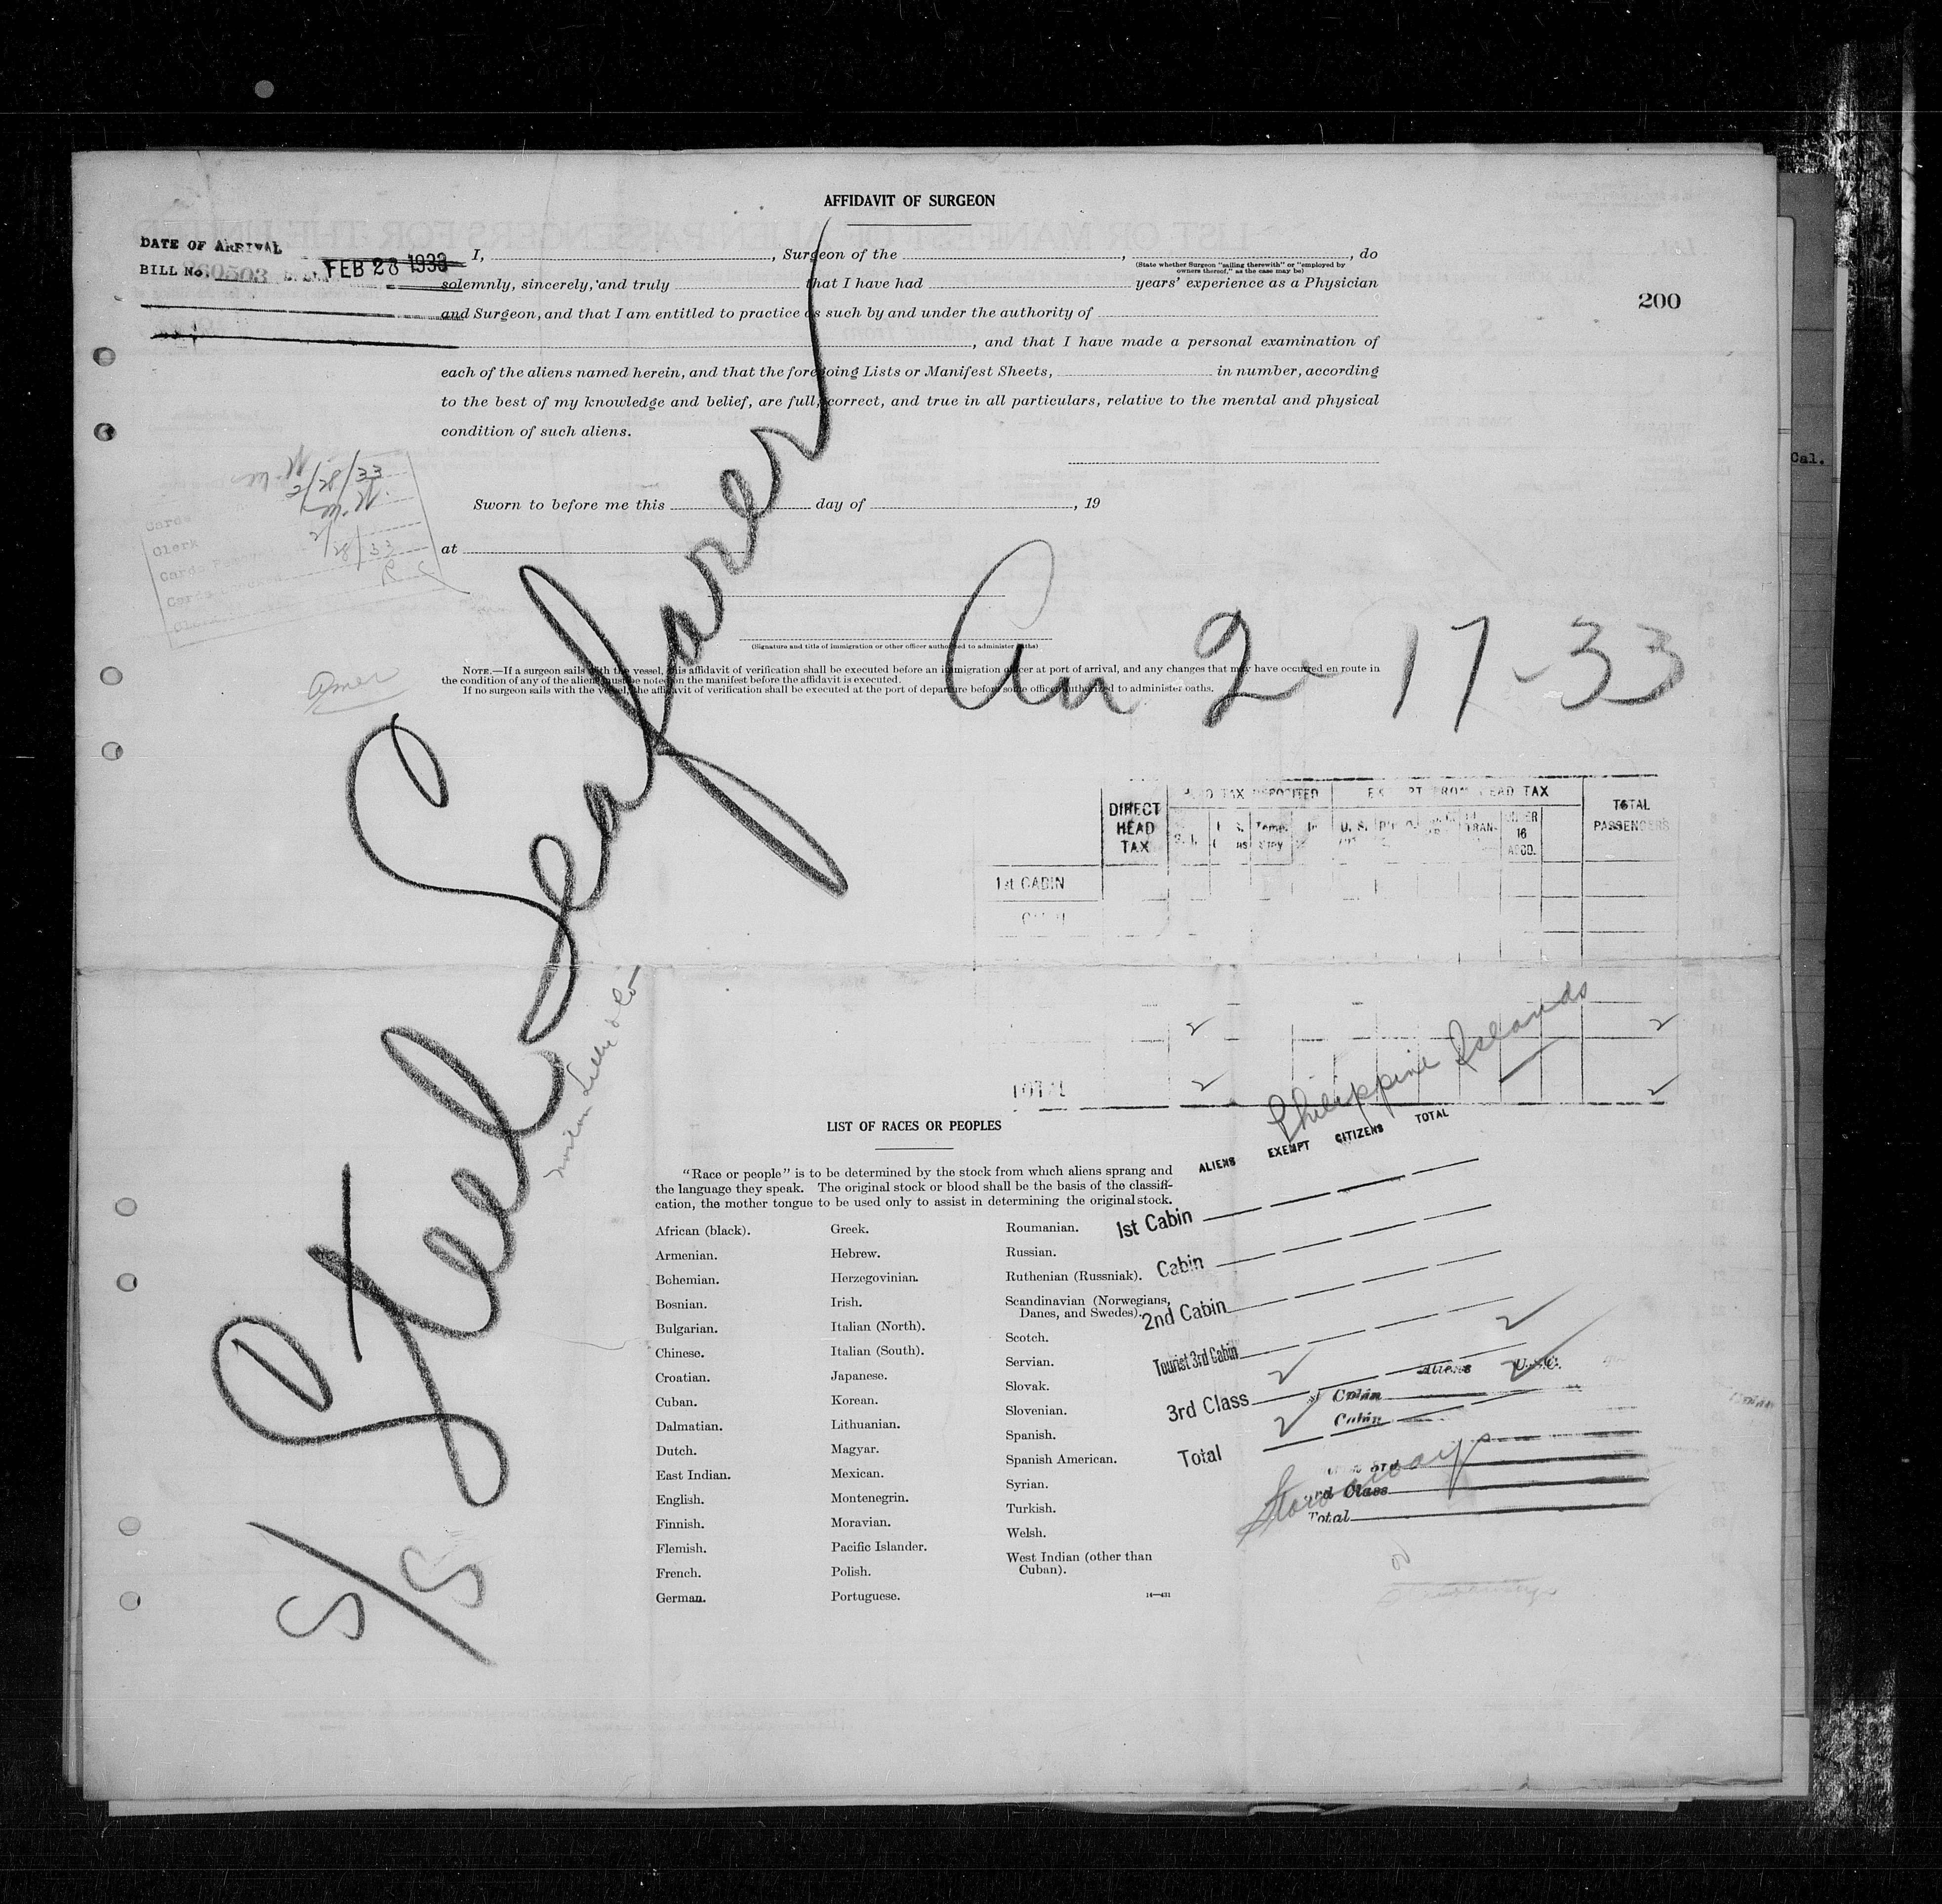 AFFIDAVIT OF SURGEON
DATE OF ARRIVAL
BILL No. FEB 28 1933
I, , Surgeon of the , , do
(State whether Surgeon "sailing therewith" or "employed by
owners thereof," as the case may be)
solemnly, sincerely, and truly that I have had years' experience as a Physician
200
and Surgeon, and that I am entitled to practice as such by and under the authority of
, and that I have made a personal examination of
each of the aliens named herein, and that the foregoing Lists or Manifest Sheets, in number, according
to the best of my knowledge and belief, are full, correct, and true in all particulars, relative to the mental and physical
condition of such aliens.
Cal.
2/28/33
Clerk
2/28/33
Sworn to before me this day of , 19
at
(Signature and title of immigration or other officer authorized to administer oaths)
NOTE.—If a surgeon sails with the vessel, this affidavit of verification shall be executed before an immigration officer at port of arrival, and any changes that may have occurred en route in
the condition of any of the aliens must be noted on the manifest before the affidavit is executed.
If no surgeon sails with the vessel, the affidavit of verification shall be executed at the port of departure before some officer authorized to administer oaths.
Amer
S/S Steel Seafarer
Arr 2-17-33
DIRECT
HEAD
TAX
HEAD TAX DEPOSITED
EXEMPT FROM HEAD TAX
UNDER
16
ACCD.
TOTAL
PASSENGERS
1st CABIN
2 2
TOTAL 2 2
Philippine Islands
LIST OF RACES OR PEOPLES
"Race or people" is to be determined by the stock from which aliens sprang and
the language they speak. The original stock or blood shall be the basis of the classifi-
cation, the mother tongue to be used only to assist in determining the original stock.
African (black).
Armenian.
Bohemian.
Bosnian.
Bulgarian.
Chinese.
Croatian.
Cuban.
Dalmatian.
Dutch.
East Indian.
English.
Finnish.
Flemish.
French.
German.
Greek.
Hebrew.
Herzegovinian.
Irish.
Italian (North).
Italian (South).
Japanese.
Korean.
Lithuanian.
Magyar.
Mexican.
Montenegrin.
Moravian.
Pacific Islander.
Polish.
Portuguese.
Roumanian.
Russian.
Ruthenian (Russniak).
Scandinavian (Norwegians,
Danes, and Swedes).
Scotch.
Servian.
Slovak.
Slovenian.
Spanish.
Spanish American.
Syrian.
Turkish.
Welsh.
West Indian (other than
Cuban).
14—431
ALIENS EXEMPT CITIZENS TOTAL
1st Cabin
Cabin
2nd Cabin
Tourist 3rd Cabin
3rd Class 2 2
Total 2 2
Aliens U.S.C.
Cabin
Cabin
3rd Class
Total
Stowaways